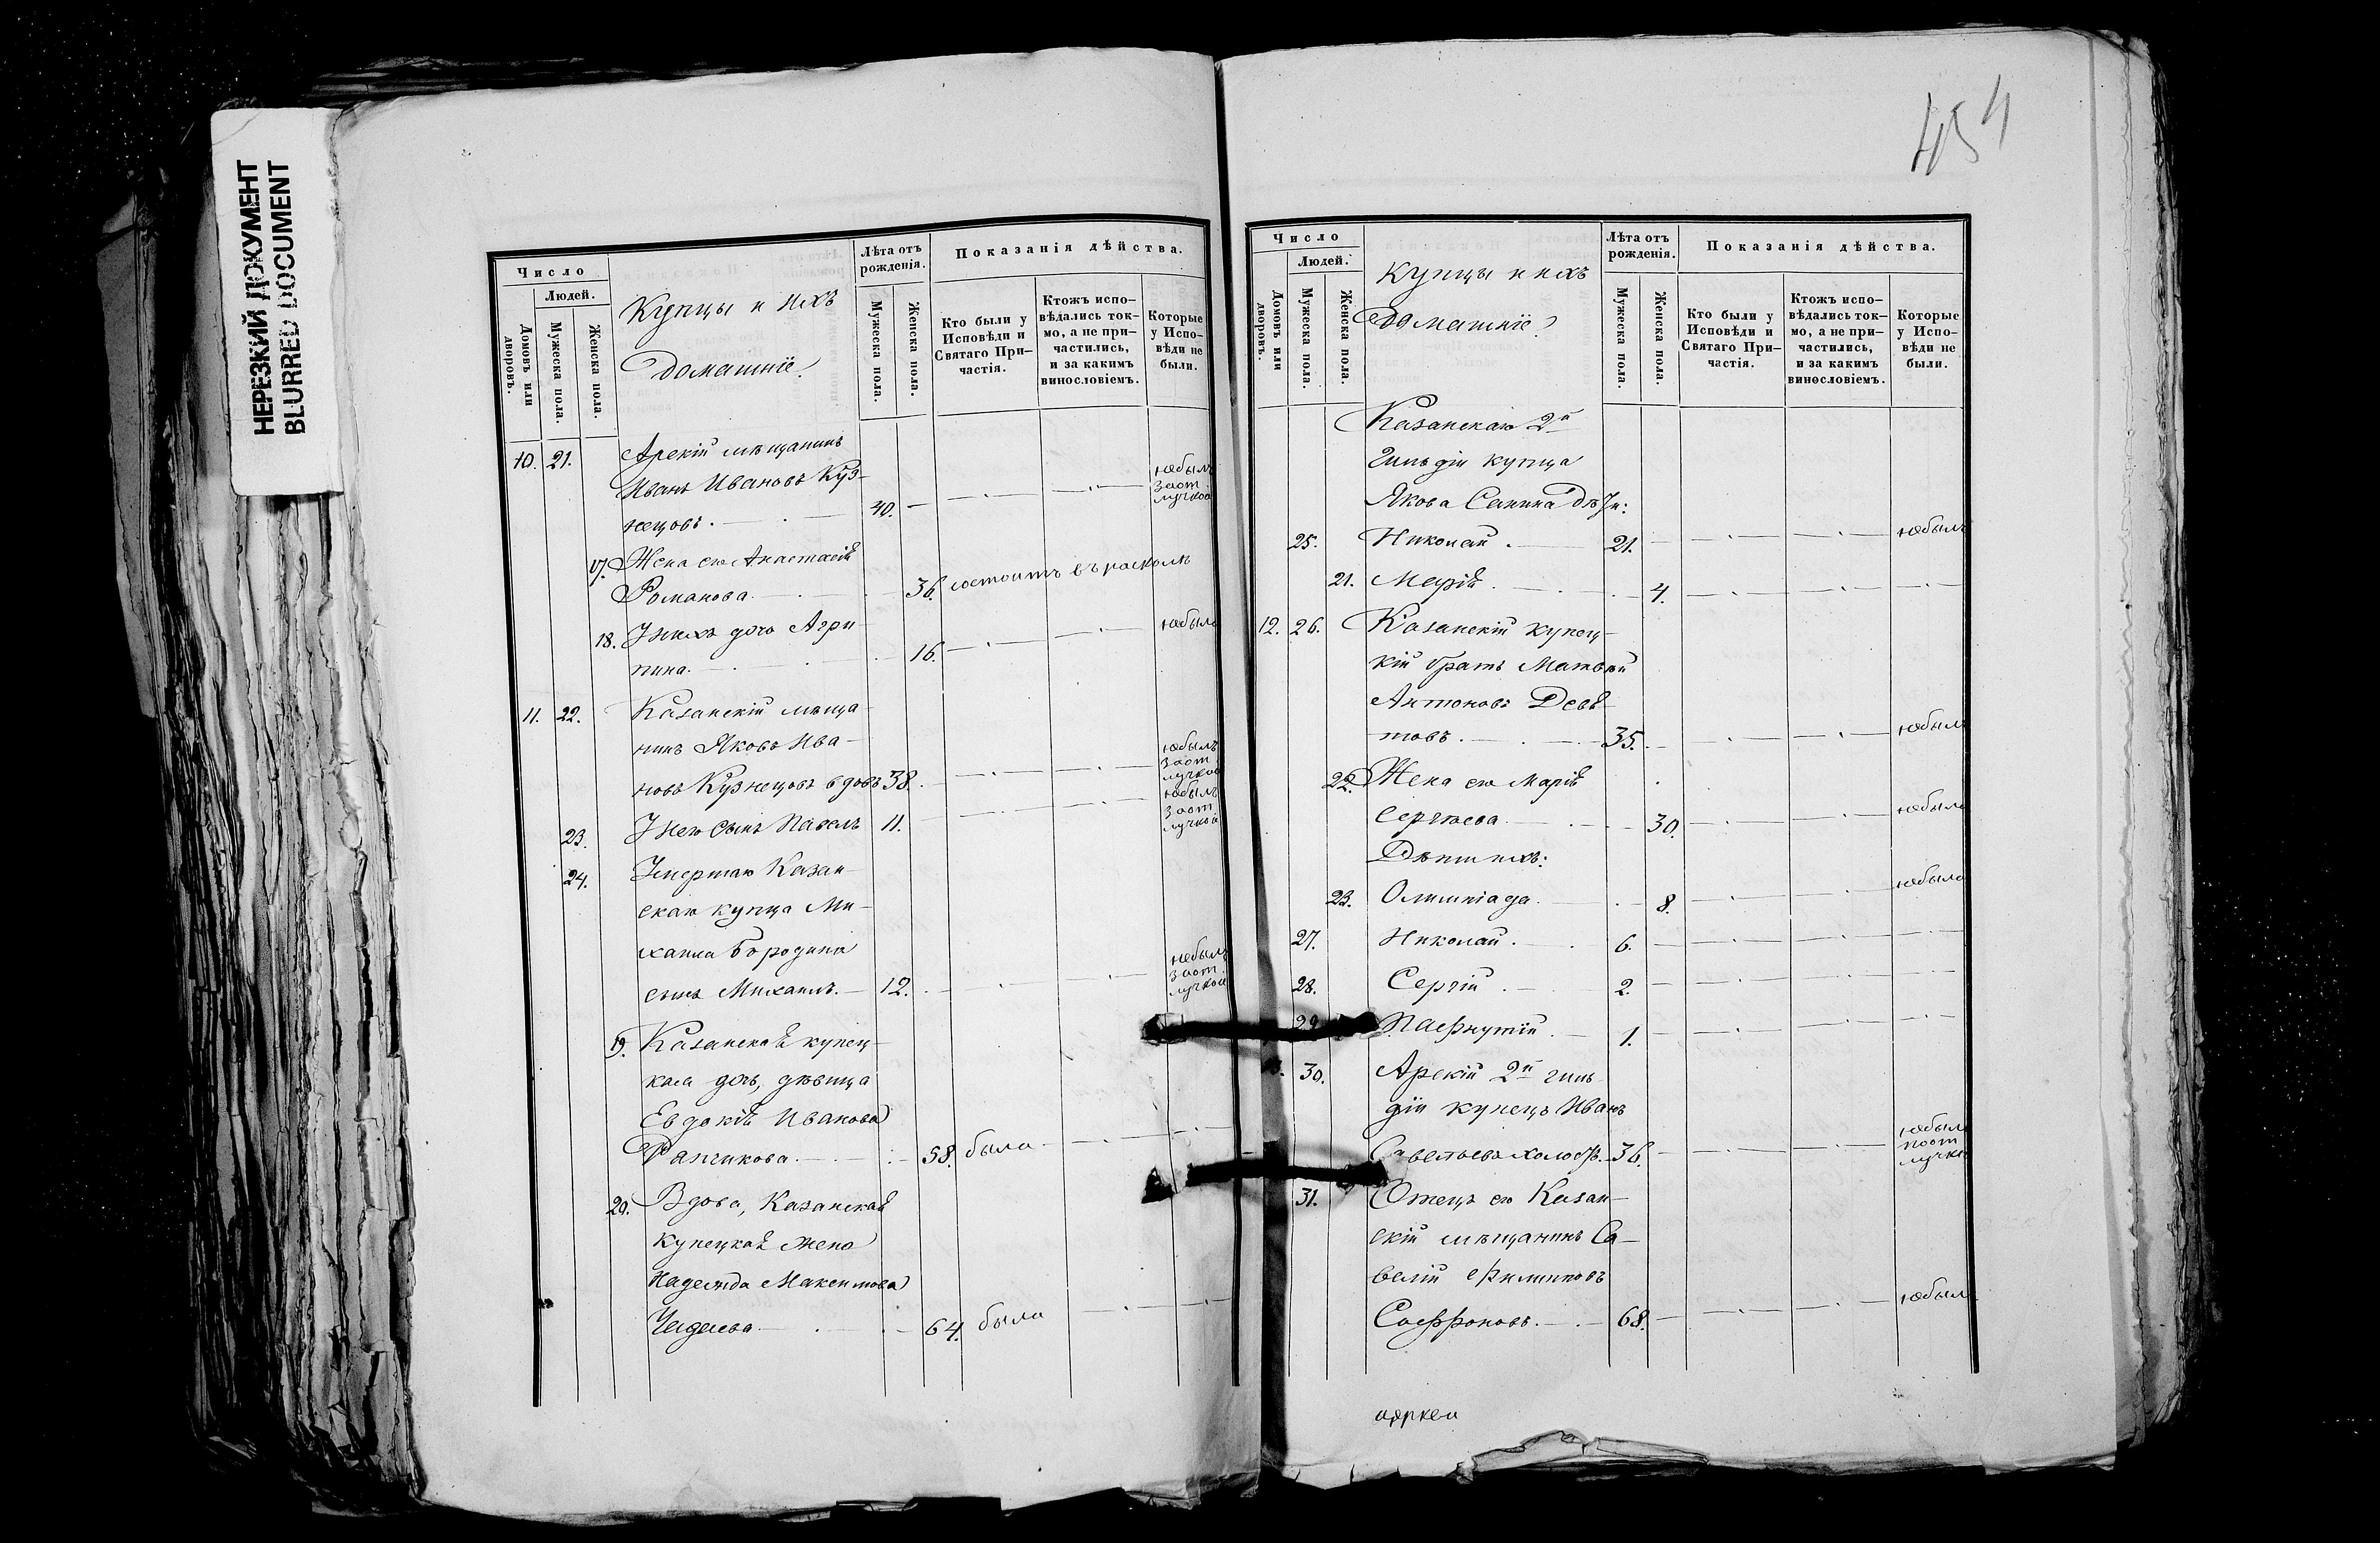 НЕРЕЗКИЙ ДОКУМЕНТ
BLURRED DOCUMENT
Число
Людей.
Домовъ или дворовъ.
Мужеска пола.
Женска пола.
Купцы и ихъ
домашніе.
Лѣта отъ рожденія.
Мужеска пола.
Женска пола.
Показанія дѣйства.
Кто были у Исповѣди и Святаго Причастія.
Ктожъ исповѣдались токмо, а не причастились, и за какимъ винословіемъ.
Которые у Исповѣди не были.
10. 21. Арскій мѣщанинъ
Иванъ Ивановъ Куз-
нецовъ. 40. небылъ за отлучкой
17. Жена его Анастасія
Романова 36. состоитъ въ расколѣ
18. У нихъ дочь Агри-
пина. 16. небыла
11. 22. Казанскій мѣща-
нинъ Яковъ Ива-
новъ Кузнецовъ вдовъ 38. небылъ за отлучкой
23. У него сынъ Павелъ 11. небылъ за отлучкой
24. Умершаго Казан-
скаго купца Ми-
хаила Бородина
сынъ Михаилъ. 12. небылъ за отлучкой
19. Казанская купец-
кая дочь, дѣвица
Евдокія Иванова
Рапчикова 58. была
20. Вдова, Казанская
купецкая жена
Надежда Максимова
64. была
454
Число
Людей.
Домовъ или дворовъ.
Мужеска пола.
Женска пола.
Купцы и ихъ
домашніе.
Лѣта отъ рожденія.
Мужеска пола.
Женска пола.
Показанія дѣйства.
Кто были у Исповѣди и Святаго Причастія.
Ктожъ исповѣдались токмо, а не причастились, и за какимъ винословіемъ.
Которые у Исповѣди не были.
Казанскаго 2й
гильдіи купца
Якова Санина дѣти:
25. Николай 21. небылъ
21. Марія 4.
12. 26. Казанскій купец-
кій братъ Матвѣй
Антоновъ Девя-
товъ. 35. небылъ
22. Жена его Марія
Сергѣева 30. небыла
Дѣти ихъ:
23. Олимпіада 8. небыла
27. Николай 6.
28. Сергій 2.
29. Пафнутій 1.
30. Арскій 2й гиль-
діи купецъ Иванъ
Савельевъ холостъ. 36. небылъ по отлучкѣ
31. Отецъ его Казан-
скій мѣщанинъ Са-
велій Филиповъ
Сафроновъ. 68. небылъ
церкви